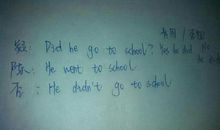 Did he go to school? Yes he did No
陈: He went to school
否: He didn't go to school